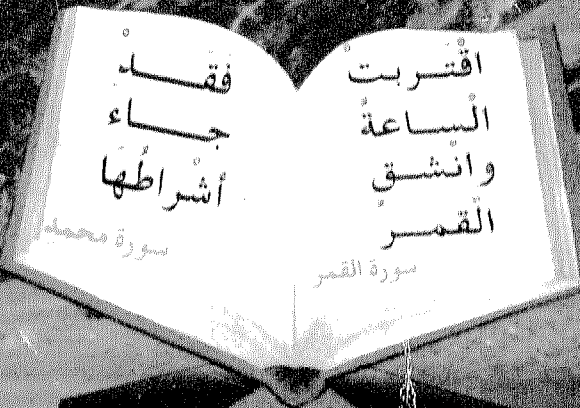 اقْتربتْ
الْساعةُ
وانْشقِ
الْقمر
سورة القمر
فَقدْ
جاء
أشْراطُهَا
سورة محمد